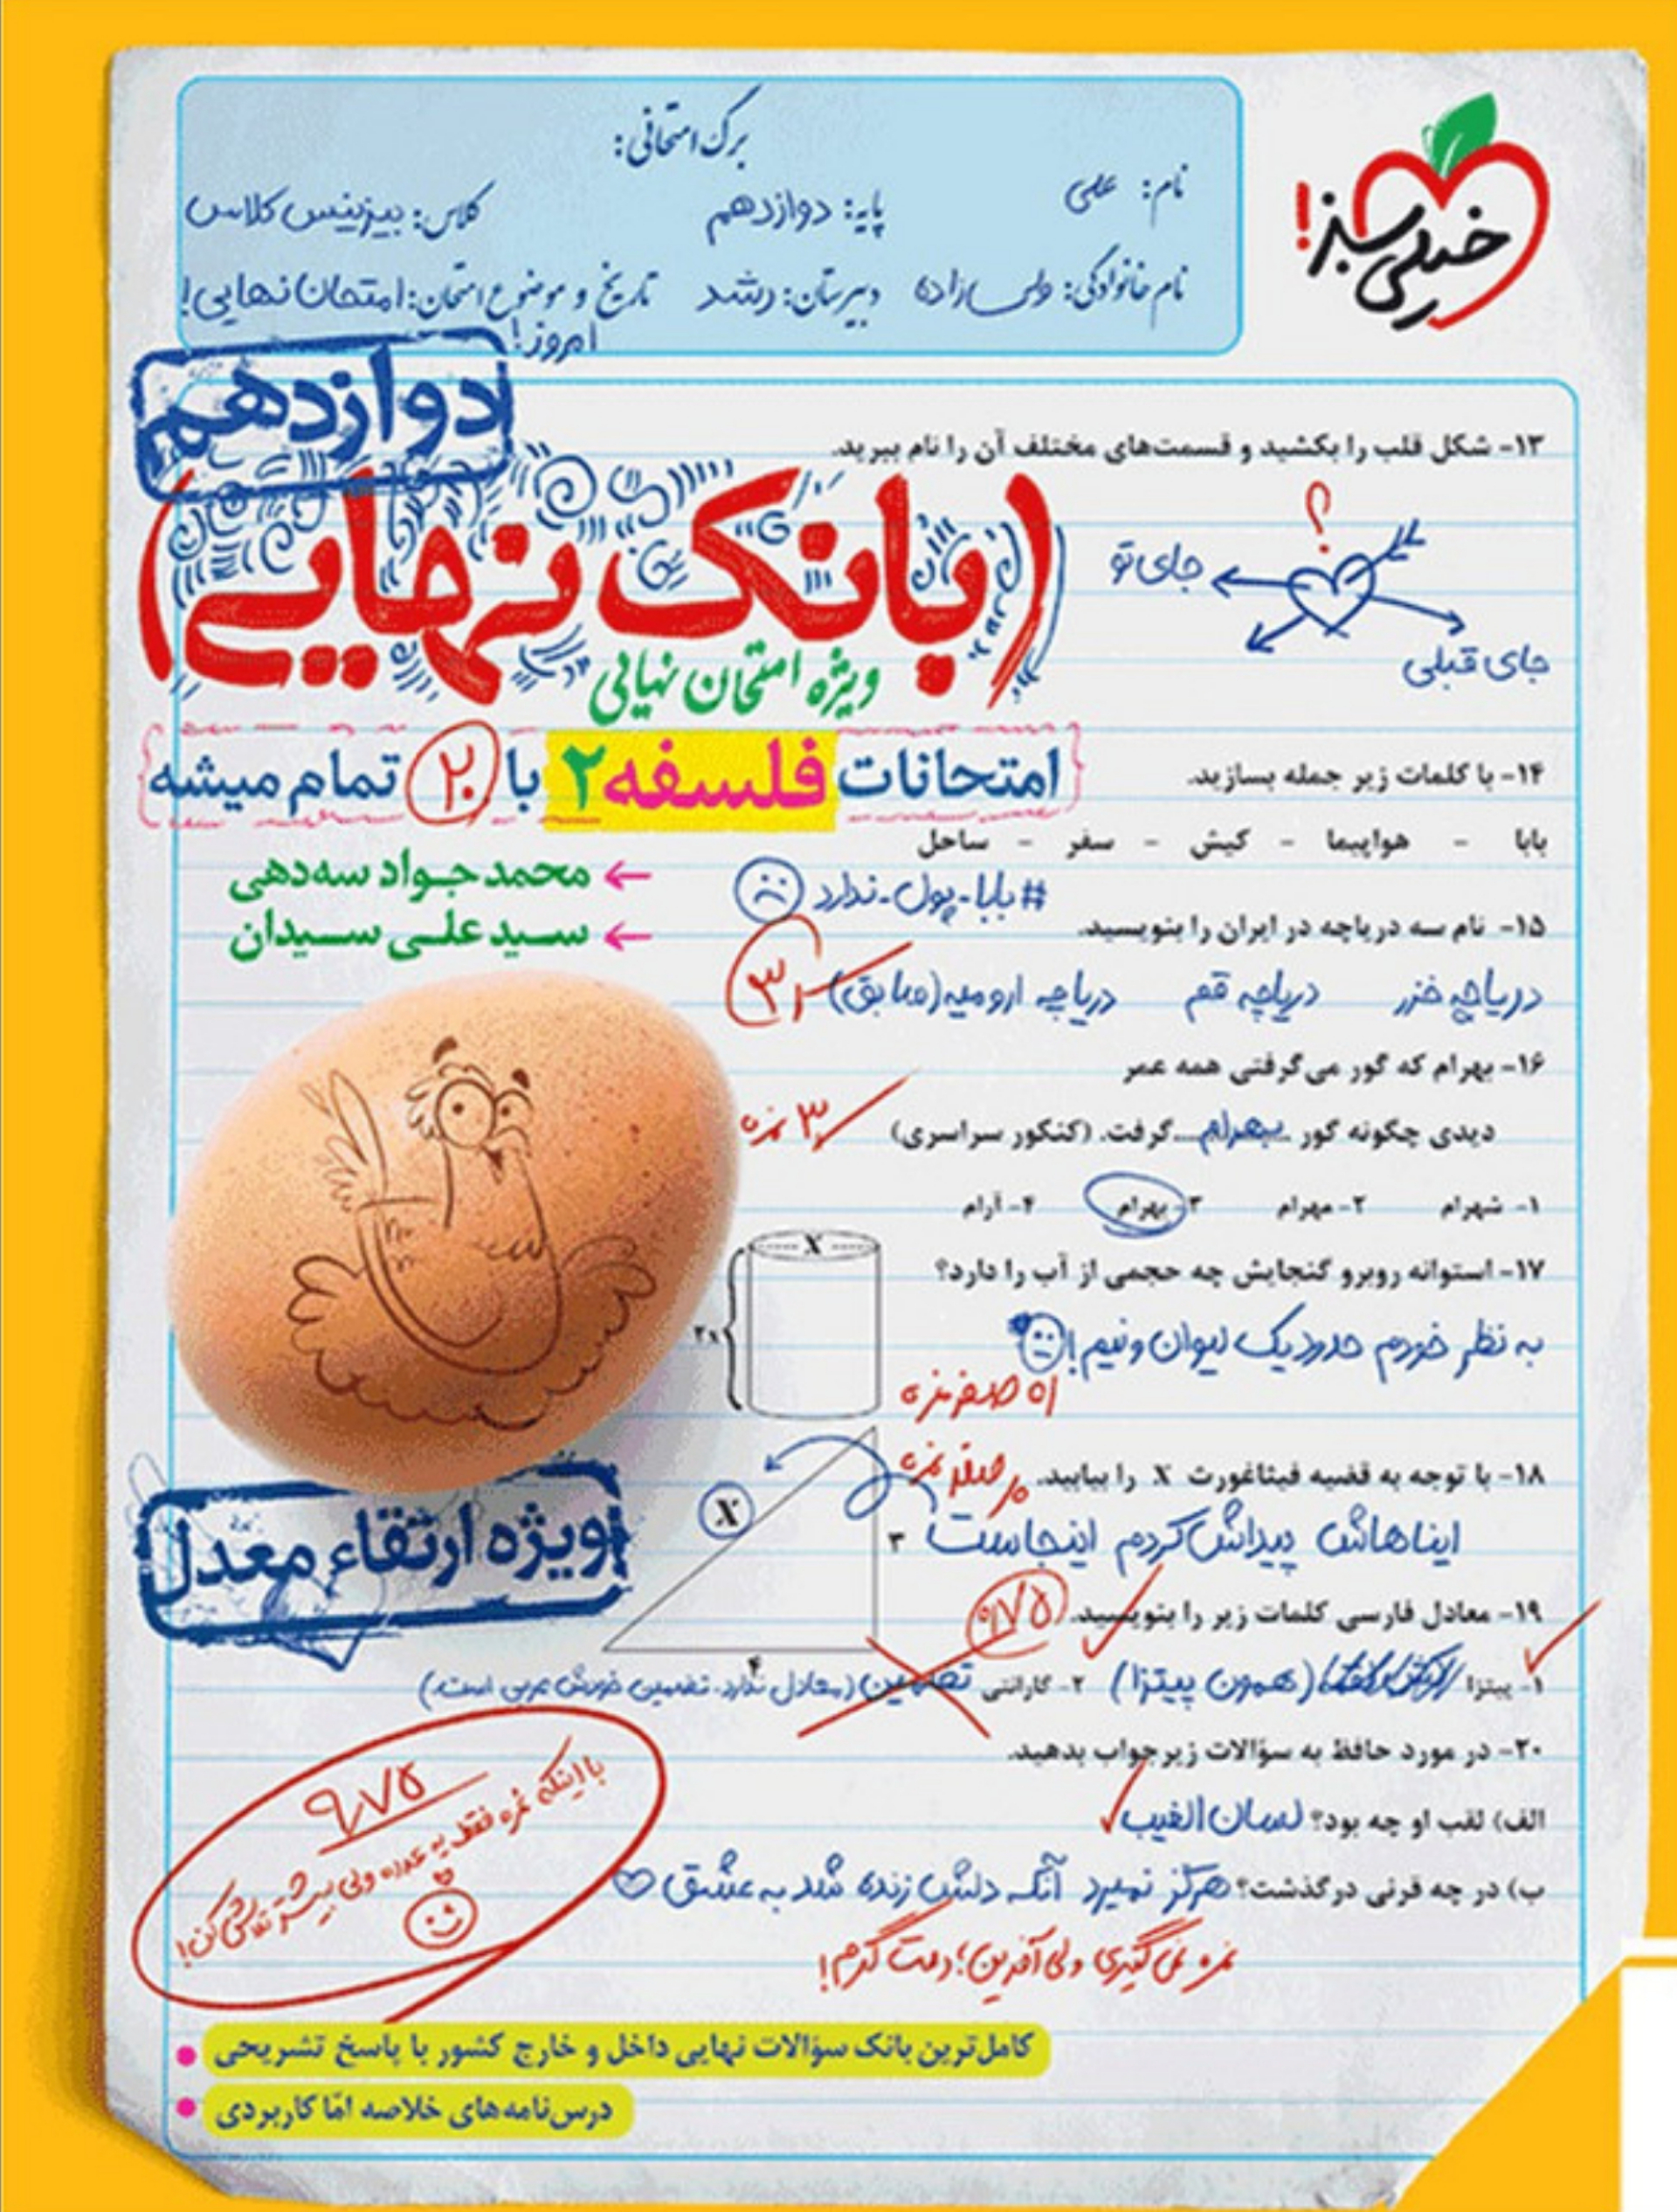 خیلی سبز!
برگ امتحانی:
نام: علی
پایه: دوازدهم
کلاس: بیزینس کلاس
نام خانوادگی: ولی زاده
دبیرستان: رشد
تاریخ و موضوع امتحان: امتحان نهایی!
امروز!
دوازدهم
(بانک نهایی)
ویژه امتحان نهایی
امتحانات فلسفه ۲ با ۲۰ تمام میشه
محمدجواد سه‌دهی
سید علی سیدان
۱۳- شکل قلب را بکشید و قسمت‌های مختلف آن را نام ببرید.
؟
جای تو
جای قبلی
۱۴- با کلمات زیر جمله بسازید.
بابا - هواپیما - کیش - سفر - ساحل
#بابا-پول-ندارد
۱۵- نام سه دریاچه در ایران را بنویسید.
دریاچه خزر دریاچه قم دریاچه ارومیه (سابق)
۳
۱۶- بهرام که گور می‌گرفتی همه عمر
دیدی چگونه گور بهرام گرفت. (کنکور سراسری)
۳ نمره
۱- شهرام ۲- مهرام ۳- بهرام ۴- آرام
۱۷- استوانه روبرو گنجایش چه حجمی از آب را دارد؟
X
۲x
به نظر خودم حدود یک لیوان و نیم!
صفر نمره
۱۸- با توجه به قضیه فیثاغورث X را بیابید.
صفر نمره
X
۳
۴
ایناهاش پیداش کردم اینجاست
۱۹- معادل فارسی کلمات زیر را بنویسید.
۰/۷۵
۱- پیتزا (همون پیتزا) ۲- گارانتی تضمین (معادل ندارد. تضمین خودش عربی است.)
۲۰- در مورد حافظ به سؤالات زیر جواب بدهید.
الف) لقب او چه بود؟ لسان الغیب
ب) در چه قرنی درگذشت؟ هرگز نمیرد آنکه دلش زنده شد به عشق
نمره نمی‌گیری ولی آفرین؛ دمت گرم!
۹/۷۵
با اینکه نمره فقط یه عدده ولی بیشتر تلاش کن!
ویژه ارتقاء معدل
کامل‌ترین بانک سؤالات نهایی داخل و خارج کشور با پاسخ تشریحی
درس‌نامه‌های خلاصه امّا کاربردی